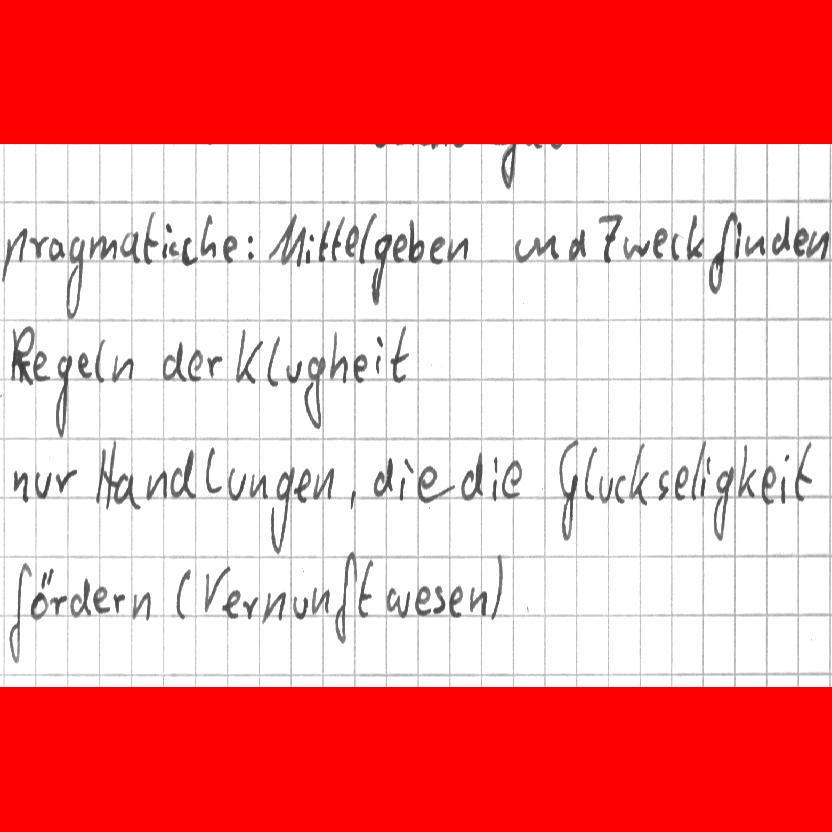 pragmatische: Mittelgeben und Zweck finden
Regeln der Klugheit
nur Handlungen, die die Gluckseligkeit
fördern (Vernunftwesen)